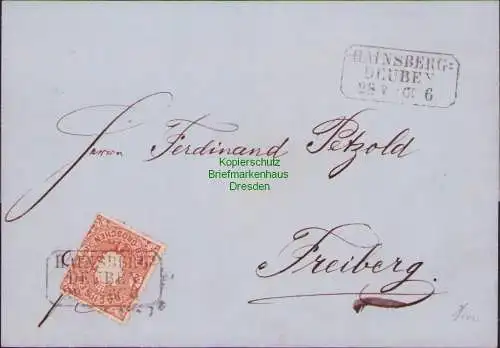 HAINSBERG:
DEUBEN
28 V 6
Herrn Ferdinand Petzold
Kopierschutz
Briefmarkenhaus
Dresden
HAINSBERG:
DEUBEN
Freiberg.